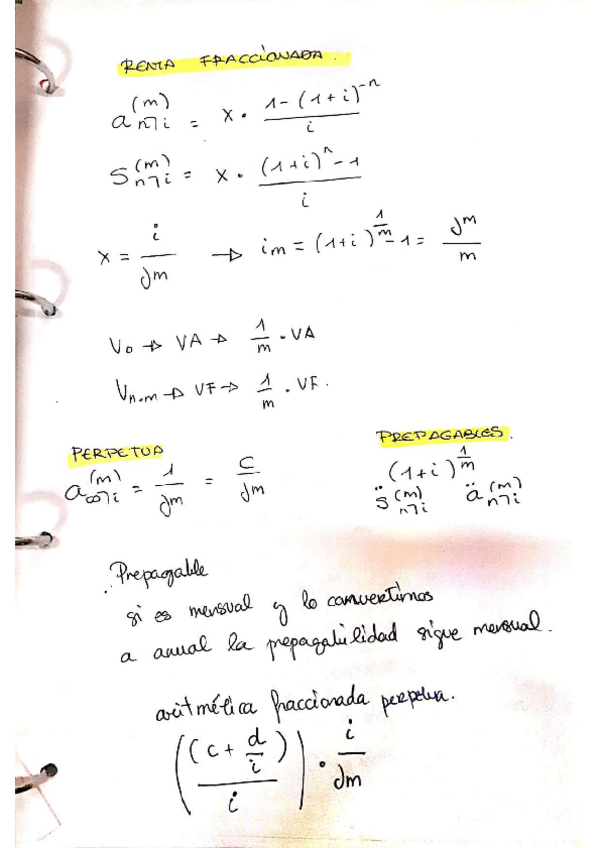 RENTA FRACCIONADA.
a (m) n⌉i = x · 1-(1+i)^-n / i
S (m) n⌉i = x · (1+i)^n - 1 / i
x = i / Jm → im = (1+i)^1/m - 1 = Jm / m
Vo → VA → 1/m · VA
Vn·m → VF → 1/m · VF.
PERPETUA
a (m) ∞⌉i = 1/Jm = C/Jm
PREPAGABLES.
(1+i)^1/m
s̈ (m) n⌉i ä (m) n⌉i
Prepagable
si es mensual y lo convertimos
a anual la prepagabilidad sigue mensual.
aritmética fraccionada perpetua.
((c + d/i) / i) · i/Jm